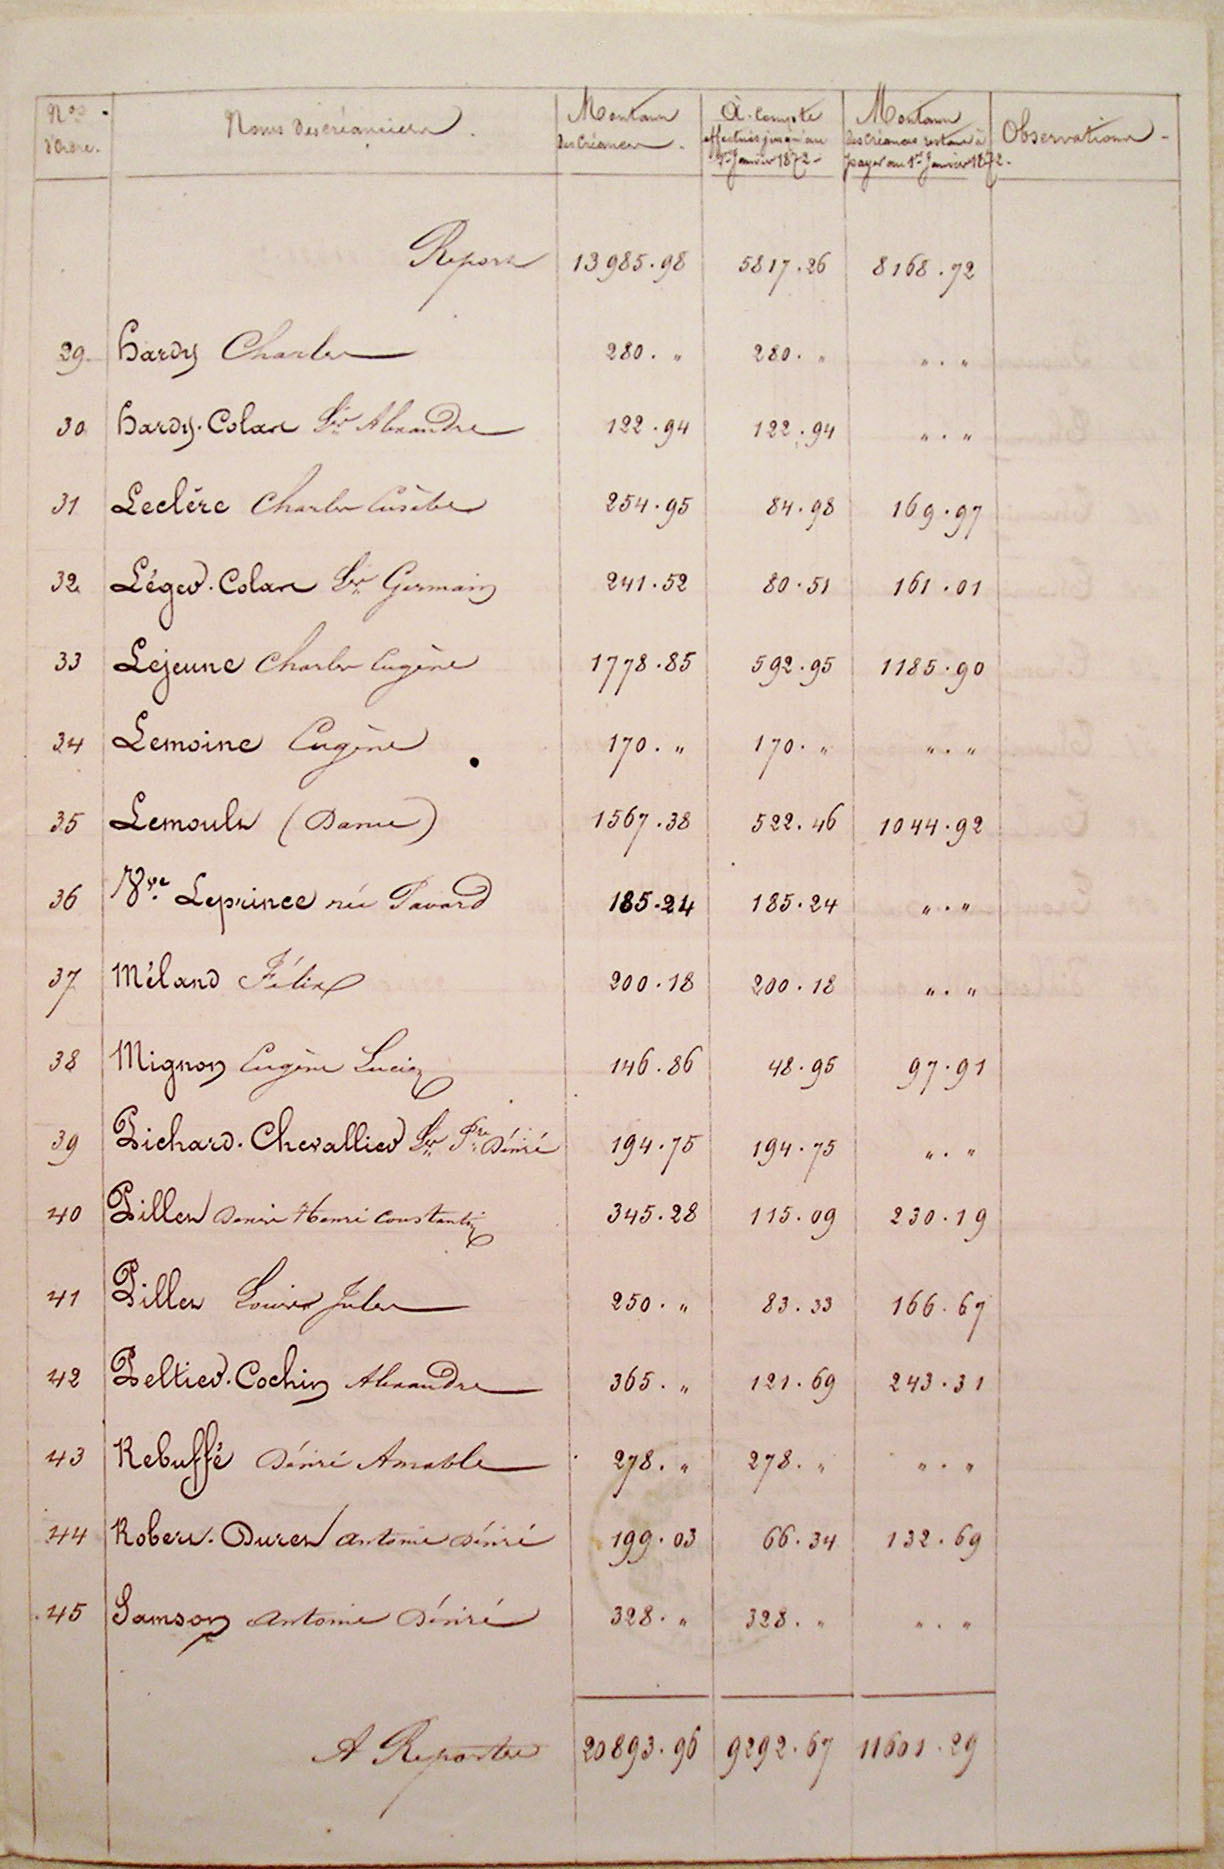 Nos d'ordre. Noms des créanciers. Montant des Créances. À-Compte effectués jusqu'au 1er Janvier 1872 - Montant des Créances restant à payer au 1er Janvier 1872 - Observations -
Report 13985.98 5817.26 8168.72
29. Hardy Charles 280. " 280. " " . "
30 Hardy-Colas Ls Alexandre 122.94 122.94 " . "
31 Leclére Charles Eusèbe 254.95 84.98 169.97
32. Léger-Colas Ls Germain 241.52 80.51 161.01
33 Lejeune Charles Eugène 1778.85 592.95 1185.90
34 Lemoine Eugène 170. " 170. " " . "
35 Lemoult (Dame) 1567.38 522.46 1044.92
36 Vve Leprince née Pavard 185.24 185.24 " . "
37 Méland Félix 200.18 200.18 " . "
38 Mignon Eugène Lucien 146.86 48.95 97.91
39 Pichard-Chevallier Ls Pre Désiré 194.75 194.75 " . "
40 Pillet Denis Henri Constantin 345.28 115.09 230.19
41 Pillet Louis Jules 250. " 83.33 166.67
42 Peltier-Cochin Alexandre 365. " 121.69 243.31
43 Rebuffé Désiré Amable 278. " 278. " " . "
44 Robert-Duret Antoine Désiré 199.03 66.34 132.69
45 Samson Antoine Désiré 328. " 328. " " . "
A Reporter 20893.96 9292.67 11601.29